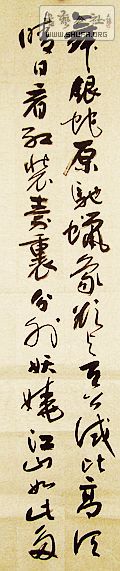 WWW.SHUFA.ORG
舞銀蛇原馳蠟象欲与天公试比高须
晴日看红装素裹分外妖娆江山如此多